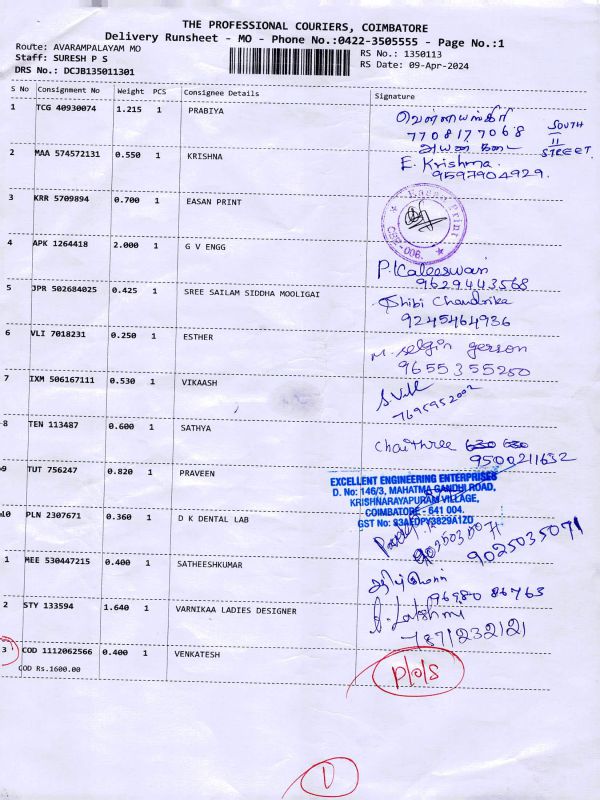 THE PROFESSIONAL COURIERS, COIMBATORE
Delivery Runsheet - MO - Phone No.:0422-3505555 - Page No.:1
Route: AVARAMPALAYAM MO
RS No.: 1350113
Staff: SURESH P S
RS Date: 09-Apr-2024
DRS No.: DCJB135011301
S No Consignment No Weight PCS Consignee Details Signature
1 TCG 40930074 1.215 1 PRABIYA
7708177068
SOUTH
II
STREET
2 MAA 574572131 0.550 1 KRISHNA E. Krishna.
9597904929.
3 KRR 5709894 0.700 1 EASAN PRINT
Easan Print
CBE-006.
4 APK 1264418 2.000 1 G V ENGG
P. Kaleeswari
9629443568
5 JPR 502684025 0.425 1 SREE SAILAM SIDDHA MOOLIGAI
Shibi Chandrika
9245464936
6 VLI 7018231 0.250 1 ESTHER
M. Selgin gerson
9655355250
7 IXM 506167111 0.530 1 VIKAASH
7695952002
8 TEN 113487 0.600 1 SATHYA
Chaithree 630 630
9500211632
9 TUT 756247 0.820 1 PRAVEEN
EXCELLENT ENGINEERING ENTERPRISES
D. No: 146/3, MAHATMA GANDHI ROAD,
KRISHNARAYAPURAM VILLAGE,
COIMBATORE - 641 004.
GST No: 33AEDPY3829A1Z0
10 PLN 2307671 0.360 1 D K DENTAL LAB
9025035071
9025035071
1 MEE 530447215 0.400 1 SATHEESHKUMAR
96980 86763
2 STY 133594 1.640 1 VARNIKAA LADIES DESIGNER
Lakshmi
7871232121
3 COD 1112062566 0.400 1 VENKATESH
COD Rs.1600.00
P/O/S
1